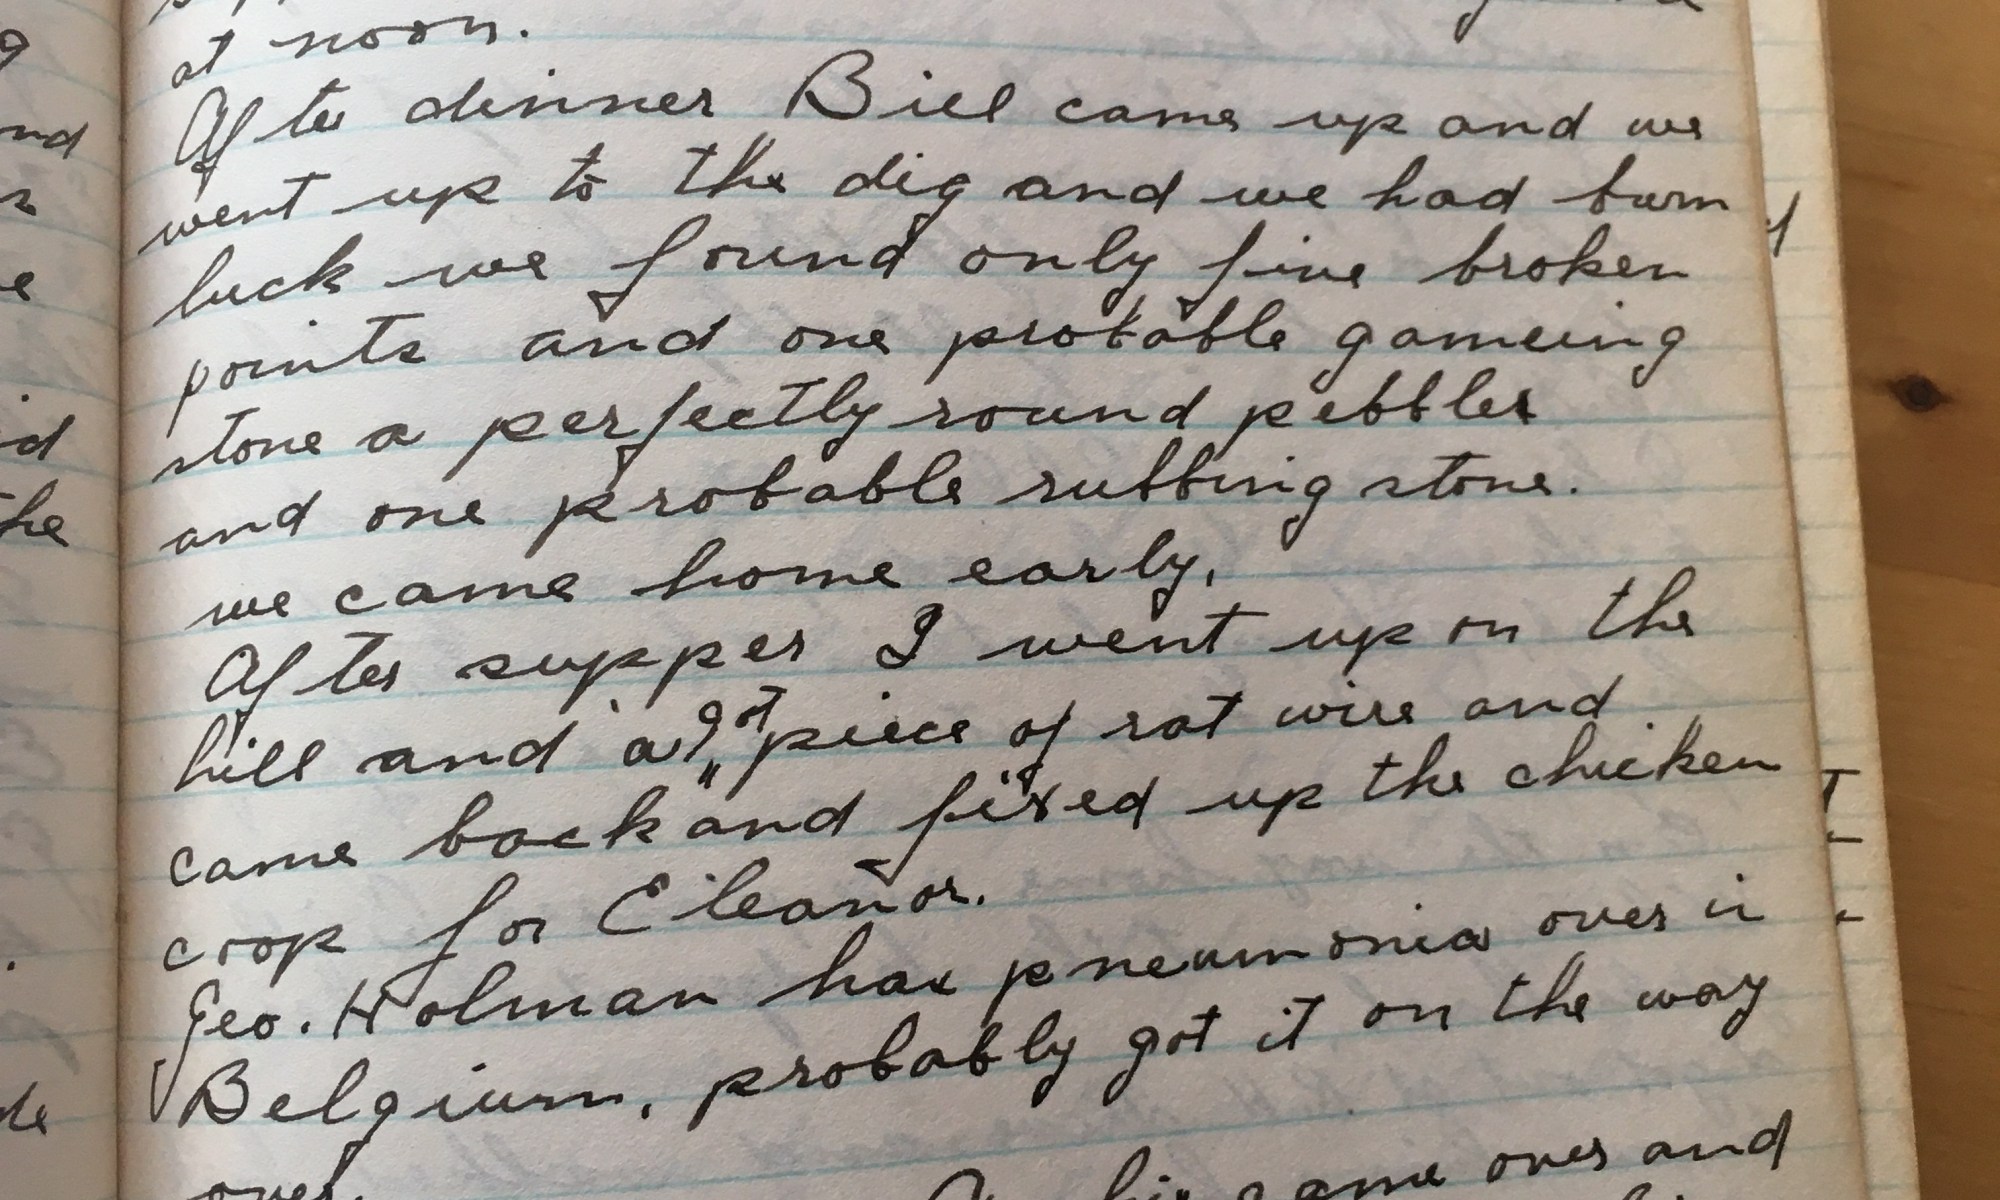 at noon.
After dinner Bill came up and we
went up to the dig and we had bum
luck we found only five broken
points and one probable gameing
stone a perfectly round pebble
and one probable rubbing stone.
we came home early.
After supper I went up on the
hill and a got piece of rat wire and
came back and fixed up the chicken
coop for Eileanor.
Geo. Holman has pneumonia over in
Belgium, probably got it on the way
over.
came over and